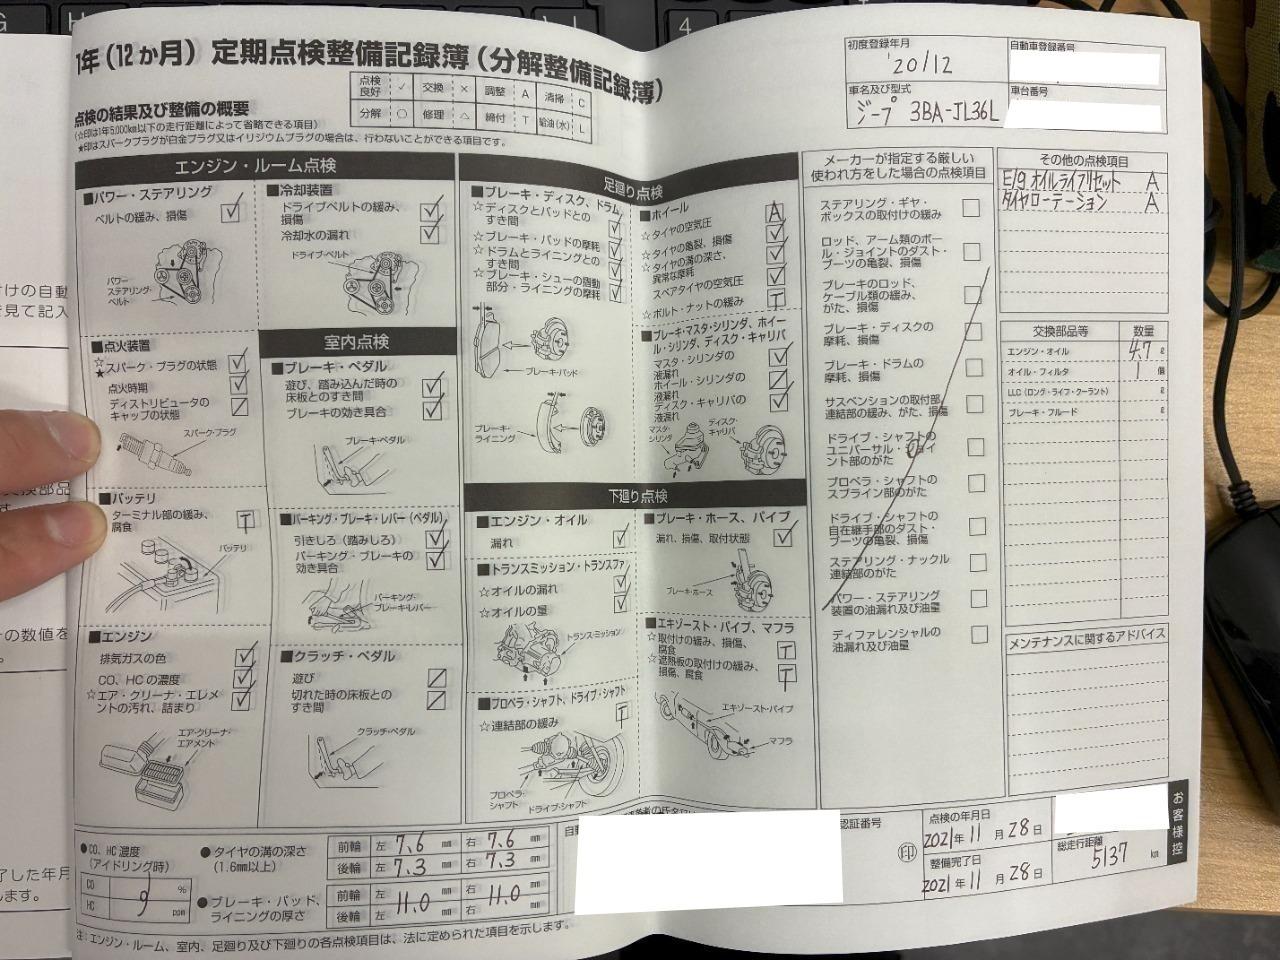 1年(12か月)定期点検整備記録簿(分解整備記録簿)
点検の結果及び整備の概要
(☆印は1年5,000km以下の走行距離によって省略できる項目)
★印はスパークプラグが白金プラグ又はイリジウムプラグの場合は、行わないことができる項目です。
点検良好 ✓ 交換 × 調整 A 清掃 C
分解 ○ 修理 △ 締付 T 給油(水) L
初度登録年月
'20/12
自動車登録番号
車名及び型式
ジープ 3BA-JL36L
車台番号
エンジン・ルーム点検
■パワー・ステアリング
ベルトの緩み、損傷
パワーステアリング・ベルト
■冷却装置
ドライブベルトの緩み、
損傷
冷却水の漏れ
ドライブ・ベルト
■点火装置
☆★スパーク・プラグの状態
点火時期
ディストリビュータの
キャップの状態
スパーク・プラグ
■バッテリ
ターミナル部の緩み、
腐食 T
バッテリ
■エンジン
排気ガスの色
CO、HCの濃度
☆エア・クリーナ・エレメ
ントの汚れ、詰まり
エア・クリーナ・
エアメント
室内点検
■ブレーキ・ペダル
遊び、踏み込んだ時の
床板とのすき間
ブレーキの効き具合
ブレーキ・ペダル
■パーキング・ブレーキ・レバー(ペダル)
引きしろ(踏みしろ)
パーキング・ブレーキの
効き具合
パーキング・
ブレーキ・レバー
■クラッチ・ペダル
遊び
切れた時の床板との
すき間
クラッチ・ペダル
足廻り点検
■ブレーキ・ディスク、ドラム
☆ディスクとパッドとの
すき間
☆ブレーキ・パッドの摩耗
☆ドラムとライニングとの
すき間
☆ブレーキ・シューの摺動
部分・ライニングの摩耗
ブレーキ・パッド
ブレーキ・
ライニング
■ホイール
☆タイヤの空気圧 A
☆タイヤの亀裂、損傷
☆タイヤの溝の深さ、
異常な摩耗
スペアタイヤの空気圧
☆ボルト・ナットの緩み T
■ブレーキ・マスタ・シリンダ、ホイー
ル・シリンダ、ディスク・キャリパ
マスタ・シリンダの
液漏れ
ホイール・シリンダの
液漏れ
ディスク・キャリパの
液漏れ
マスタ・
シリンダ
ディスク・
キャリパ
下廻り点検
■エンジン・オイル
漏れ
■トランスミッション・トランスファ
☆オイルの漏れ
☆オイルの量
トランス・ミッション
■プロペラ・シャフト、ドライブ・シャフト
☆連結部の緩み T
プロペラ・
シャフト
ドライブ・シャフト
■ブレーキ・ホース、パイプ
漏れ、損傷、取付状態
ブレーキ・ホース
■エキゾースト・パイプ、マフラ
☆取付けの緩み、損傷、
腐食 T
☆遮熱板の取付けの緩み、
損傷、腐食 T
エキゾースト・パイプ
マフラ
メーカーが指定する厳しい
使われ方をした場合の点検項目
ステアリング・ギヤ・
ボックスの取付けの緩み
ロッド、アーム類のボー
ル・ジョイントのダスト・
ブーツの亀裂、損傷
ブレーキのロッド、
ケーブル類の緩み、
がた、損傷
ブレーキ・ディスクの
摩耗、損傷
ブレーキ・ドラムの
摩耗、損傷
サスペンションの取付部、
連結部の緩み、がた、損傷
ドライブ・シャフトの
ユニバーサル・ジョイ
ント部のがた
プロペラ・シャフトの
スプライン部のがた
ドライブ・シャフトの
自在継手部のダスト・
ブーツの亀裂、損傷
ステアリング・ナックル
連結部のがた
パワー・ステアリング
装置の油漏れ及び油量
ディファレンシャルの
油漏れ及び油量
その他の点検項目
E/g オイルライフリセット A
タイヤローテーション A
交換部品等 数量
エンジン・オイル 4.7 ℓ
オイル・フィルタ 1 個
LLC(ロング・ライフ・クーラント) ℓ
ブレーキ・フルード ℓ
メンテナンスに関するアドバイス
●CO、HC濃度
(アイドリング時)
CO %
HC 9 ppm
●タイヤの溝の深さ
(1.6mm以上)
前輪 左 7.6 mm 右 7.6 mm
後輪 左 7.3 mm 右 7.3 mm
●ブレーキ・パッド、
ライニングの厚さ
前輪 左 11.0 mm 右 11.0 mm
後輪 左 mm 右 mm
認証番号
印
点検の年月日
2021年11月28日
整備完了日
2021年11月28日
総走行距離
5137 km
お客様控
注:エンジン・ルーム、室内、足廻り及び下廻りの各点検項目は、法に定められた項目を示します。